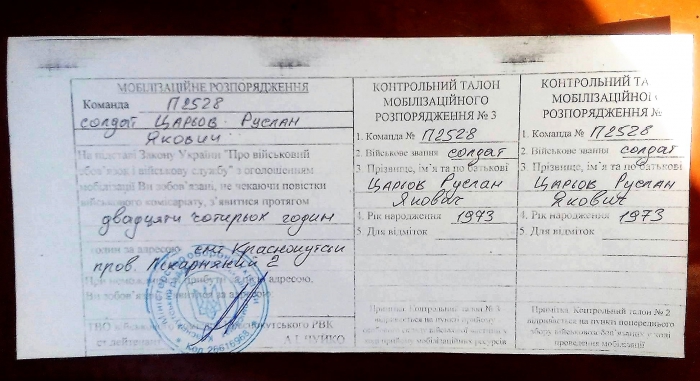 МОБІЛІЗАЦІЙНЕ РОЗПОРЯДЖЕННЯ
Команда П2528
солдат Царьов Руслан
Якович
На підставі Закону України "Про військовий
обов'язок і військову службу" з оголошенням
мобілізації Ви зобов'язані, не чекаючи повістки
військового комісаріату, з'явитися протягом
двадцяти чотирьох годин
годин за адресою смт Краснокутськ
пров. Пекарняний 2
адресою.
Ви зобов'
РВК
ст.лейтенант А.І. ЧУЙКО
КОНТРОЛЬНИЙ ТАЛОН
МОБІЛІЗАЦІЙНОГО
РОЗПОРЯДЖЕННЯ № 3
1. Команда № П2528
2. Військове звання солдат
3 Прізвище, ім`я та по батькові
Царьов Руслан
Якович
4. Рік народження 1973
5 Для відміток
Примітка Контрольний талон № 3
КОНТРОЛЬНИЙ ТА
МОБІЛІЗАЦІЙНОГ
РОЗПОРЯДЖЕННЯ №
1. Команда № П2528
2. Військове звання солдат
3 Прізвище, ім`я та по батькові
Царьов Руслан
Якович
4. Рік народження 1973
5 Для відміток
Примітка Контрольний талон № 2
видається на пункті попереднього
збору військовозобов'язаних у разі
проведення мобілізації